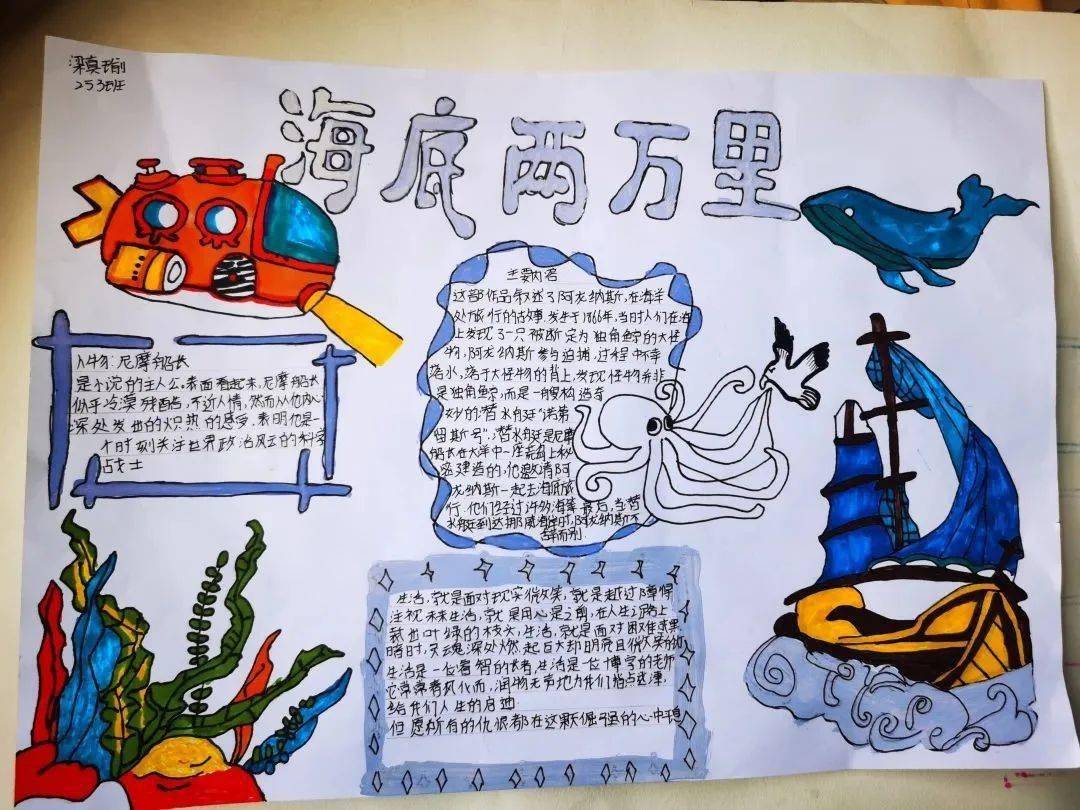 梁真瑜
253班
海底两万里
人物:尼摩船长
是小说的主人公,表面看起来,尼摩船长
似乎冷漠残酷,不近人情,然而从他内心
深处发出的炽热的感受,表明他是一
个时刻关注世界政治风云的科学
战士
主要内容
这部作品叙述了阿龙纳斯,在海洋
处旅行的故事,发生于1866年,当时人们在海
上发现了一只被断定为独角鲸的大怪
物,阿龙纳斯参与追捕,过程中不幸
落水,落于大怪物的背上,发现怪物并非
是独角鲸,而是一艘构造奇
妙的潜水的艇"诺第
留斯号",潜水艇是尼摩
船长在大洋中一座荒岛上秘
密建造的,他邀请阿
龙纳斯一起去海底旅
行,他们经过许多海拿,最后,当潜
水艇到达挪威海岸时,阿龙纳斯不
辞而别.
生活,就是面对现实微笑,就是越过障碍
注视未来生活,就是用心是之剪,在人生之路上
裁出叶绿的枝头,生活,就是面对困难或黑
暗时,灵魂深处燃起百大却明亮且微笑的
生活是一位睿智的长者,生活是一位博学的老师
它常常春风化雨,润物无声地为我们指点迷津,
给我们人生的启迪.
但愿所有的仇恨都在这颗倔强的心中